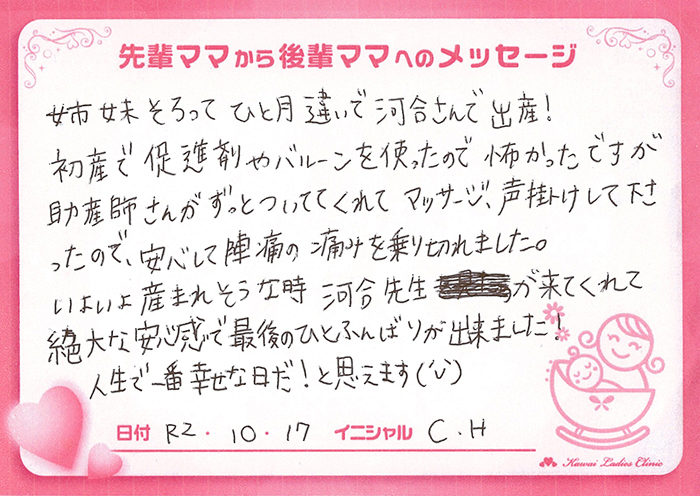 先輩ママから後輩ママへのメッセージ
姉妹そろって ひと月違いで 河合さんで 出産!
初産で 促進剤やバルーンを使ったので 怖かったですが
助産師さんが ずっとついててくれて マッサージ、声掛けして下さ
ったので、安心して 陣痛の 痛みを乗り切れました。
いよいよ 産まれそうな時 河合先生 が来てくれて
絶大な安心感で 最後のひとふんばりが 出来ました!
人生で一番 幸せな日だ!と思えます('∪')
日付 R2・10・17 イニシャル C.H
Kawai Ladies Clinic